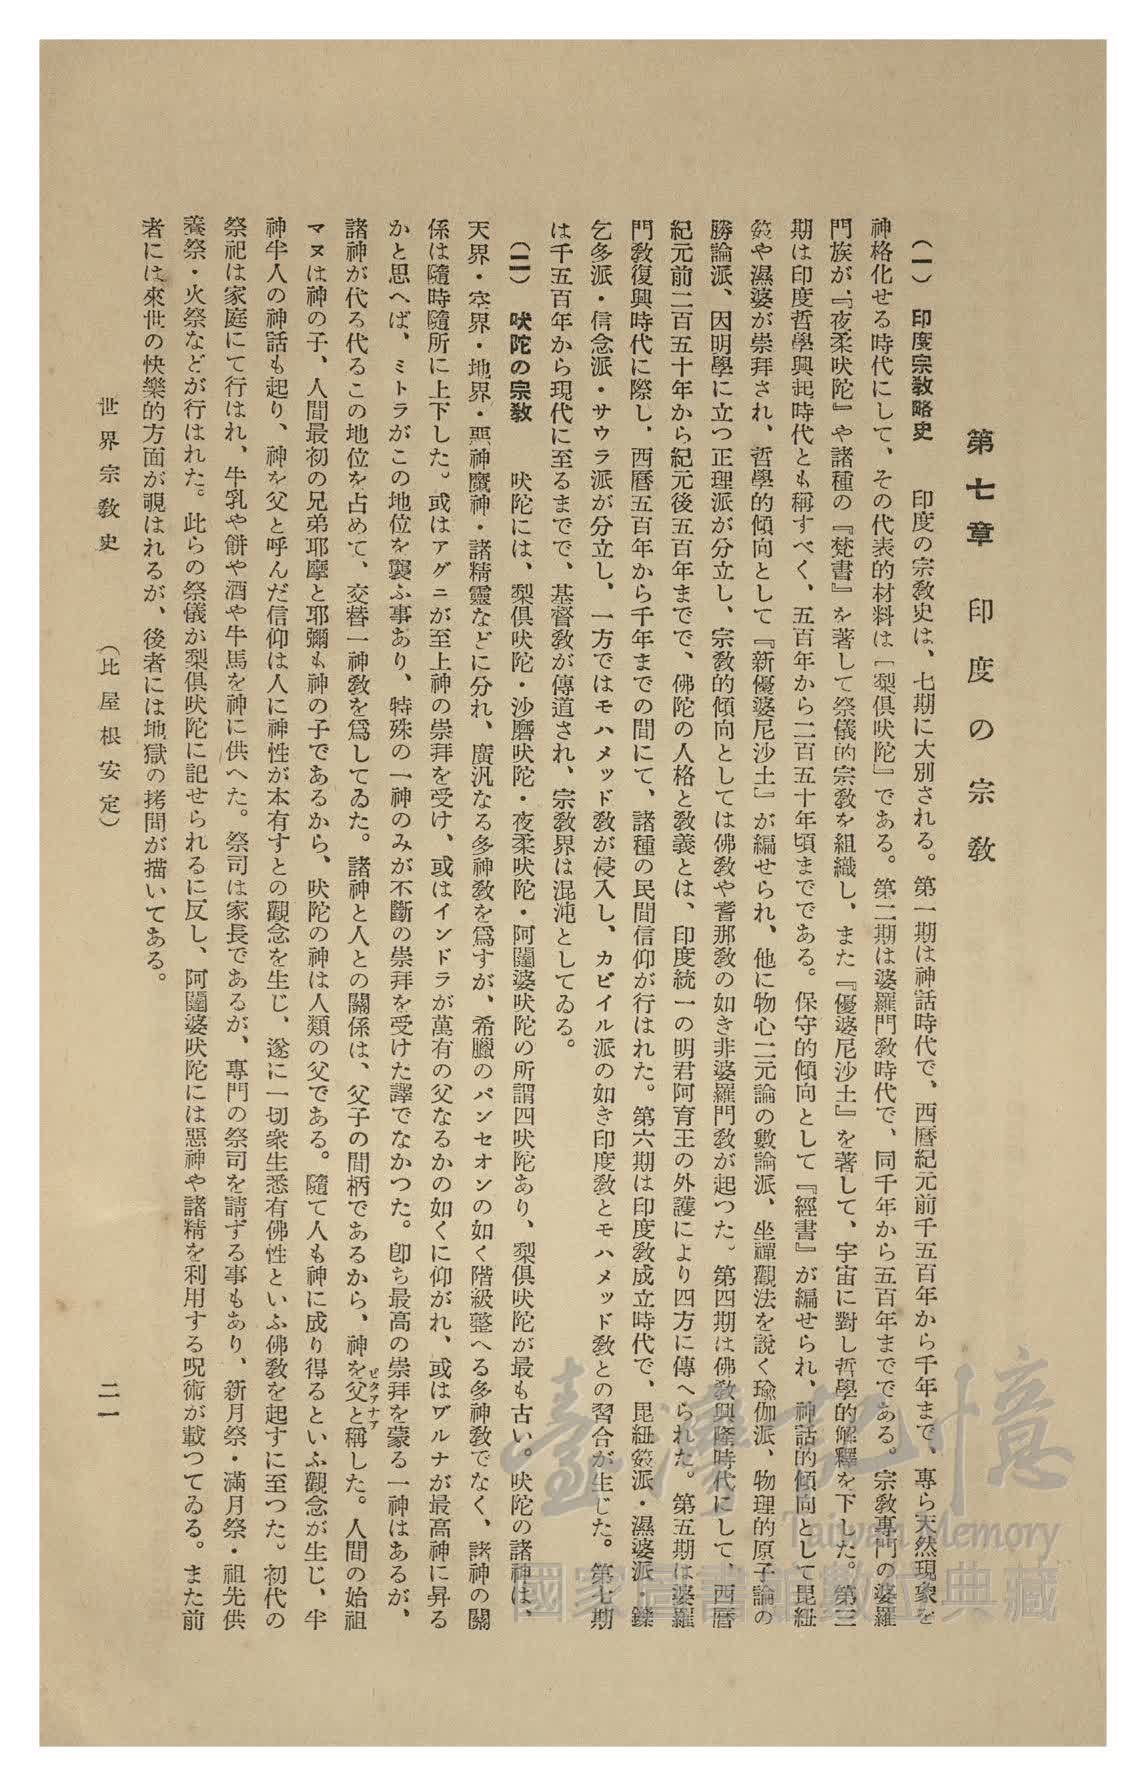 第七章　印度の宗教
（一）　印度宗教略史　　印度の宗教史は、七期に大別される。第一期は神話時代で、西曆紀元前千五百年から千年まで、專ら天然現象を
神格化せる時代にして、その代表的材料は『梨俱吠陀』である。第二期は婆羅門教時代で、同千年から五百年までである。宗教專門の婆羅
門族が、『夜柔吠陀』や諸種の『梵書』を著して祭儀的宗教を組織し、また『優婆尼沙土』を著して、宇宙に對し哲學的解釋を下した。第三
期は印度哲學興起時代とも稱すべく、五百年から二百五十年頃までである。保守的傾向として『經書』が編せられ、神話的傾向として毘紐
笯や濕婆が崇拜され、哲學的傾向として『新優婆尼沙土』が編せられ、他に物心二元論の數論派、坐禪觀法を說く瑜伽派、物理的原子論の
勝論派、因明學に立つ正理派が分立し、宗教的傾向としては佛教や耆那教の如き非婆羅門教が起つた。第四期は佛教興隆時代にして、西曆
紀元前二百五十年から紀元後五百年までで、佛陀の人格と教義とは、印度統一の明君阿育王の外護により四方に傳へられた。第五期は婆羅
門教復興時代に際し、西曆五百年から千年までの間にて、諸種の民間信仰が行はれた。第六期は印度教成立時代で、毘紐笯派・濕婆派・鑠
乞多派・信念派・サウラ派が分立し、一方ではモハメッド教が侵入し、カビイル派の如き印度教とモハメッド教との習合が生じた。第七期
は千五百年から現代に至るまでで、基督教が傳道され、宗教界は混沌としてゐる。
（二）　吠陀の宗教　　吠陀には、梨俱吠陀・沙磨吠陀・夜柔吠陀・阿闥婆吠陀の所謂四吠陀あり、梨俱吠陀が最も古い。吠陀の諸神は、
天界・空界・地界・惡神魔神・諸精靈などに分れ、廣汎なる多神教を爲すが、希臘のパンセオンの如く階級整へる多神教でなく、諸神の關
係は隨時隨所に上下した。或はアグニが至上神の崇拜を受け、或はインドラが萬有の父なるかの如くに仰がれ、或はヷルナが最高神に昇る
かと思へば、ミトラがこの地位を襲ふ事あり、特殊の一神のみが不斷の崇拜を受けた譯でなかつた。卽ち最高の崇拜を蒙る一神はあるが、
諸神が代る代るこの地位を占めて、交替一神教を爲してゐた。諸神と人との關係は、父子の間柄であるから、神を父と稱した。人間の始祖
ピタアナア
マヌは神の子、人間最初の兄弟耶摩と耶彌も神の子であるから、吠陀の神は人類の父である。隨て人も神に成り得るといふ觀念が生じ、半
神半人の神話も起り、神を父と呼んだ信仰は人に神性が本有すとの觀念を生じ、遂に一切衆生悉有佛性といふ佛教を起すに至つた。初代の
祭祀は家庭にて行はれ、牛乳や餅や酒や牛馬を神に供へた。祭司は家長であるが、專門の祭司を請ずる事もあり、新月祭・滿月祭・祖先供
養祭・火祭などが行はれた。此らの祭儀が梨俱吠陀に記せられるに反し、阿闥婆吠陀には惡神や諸精を利用する呪術が載つてゐる。また前
者には來世の快樂的方面が覗はれるが、後者には地獄の拷問が描いてある。
世界宗教史　（比屋根安定）　二一
臺灣記憶
Taiwan Memory
國家圖書館數位典藏